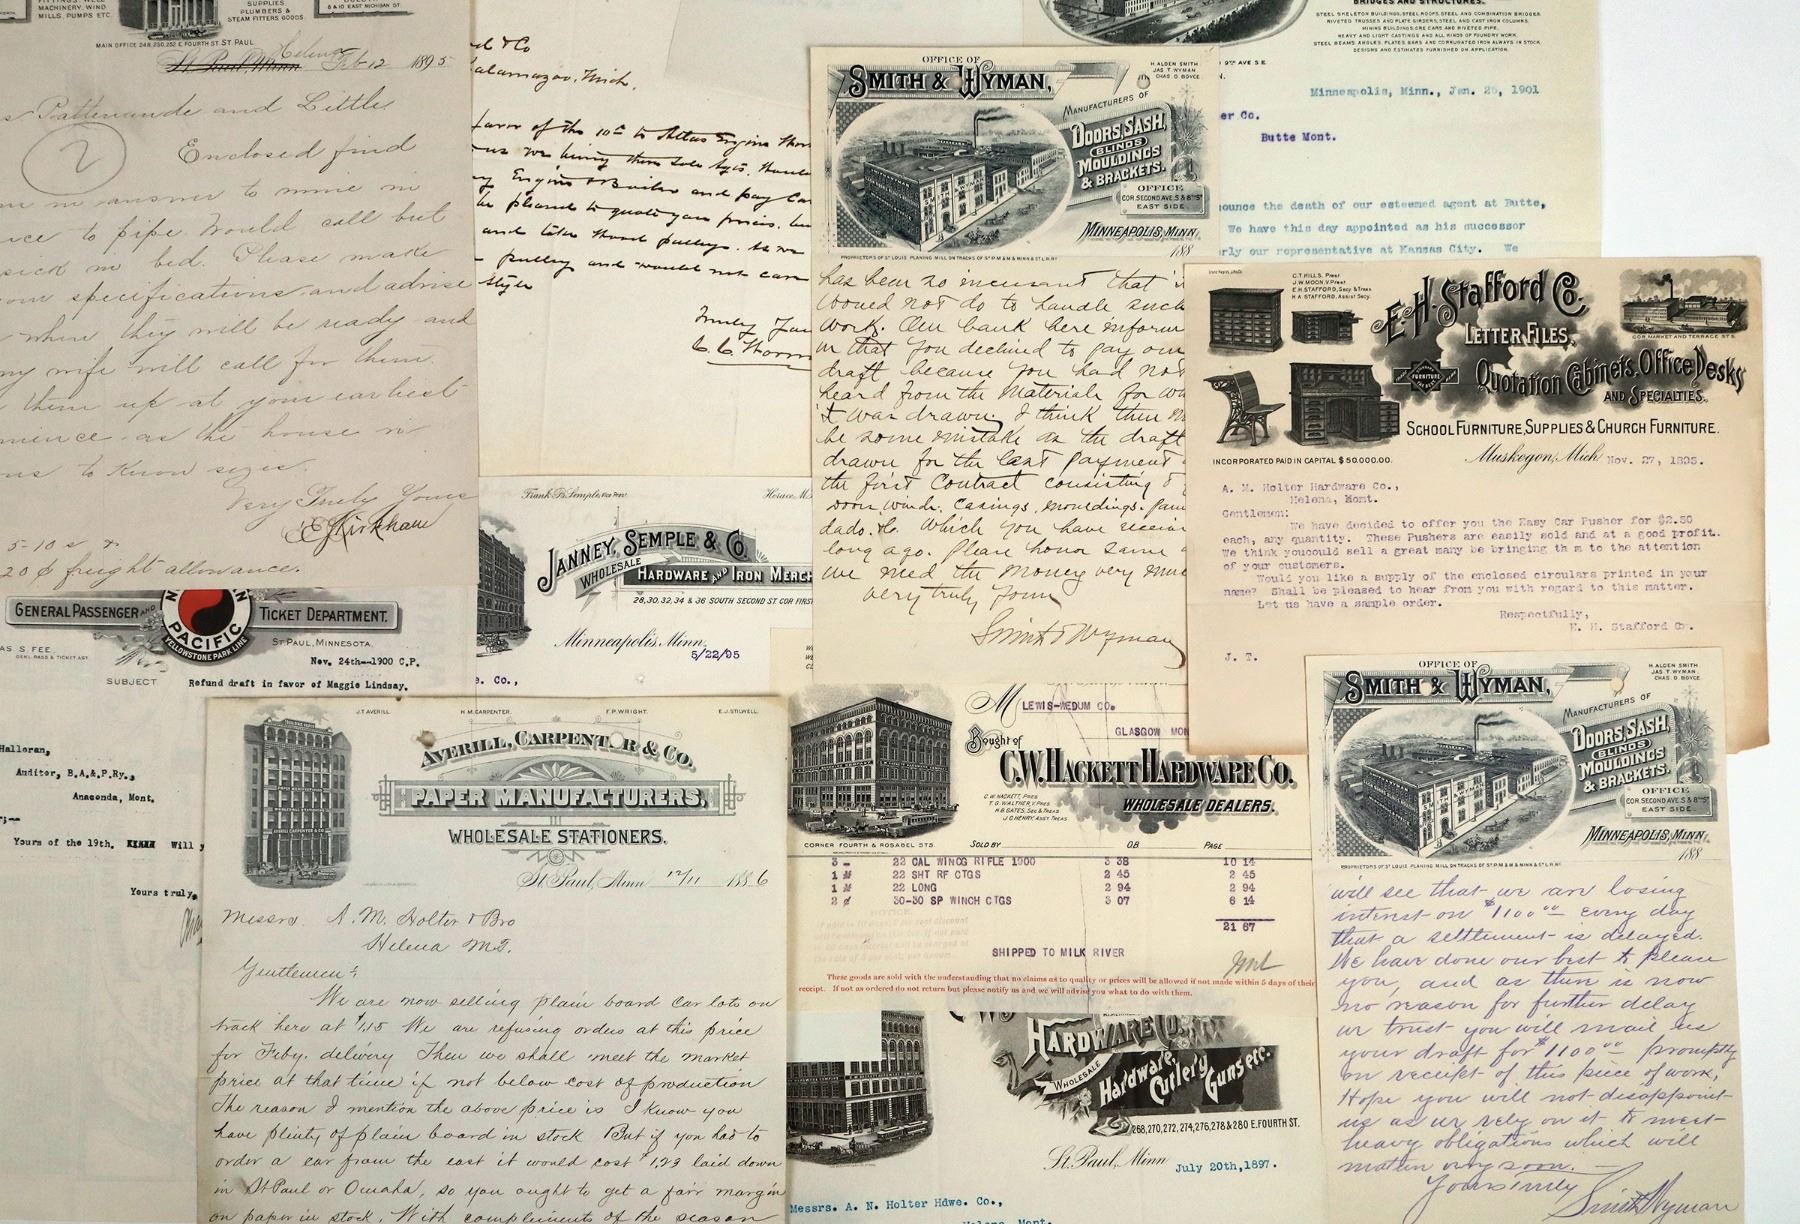 FITTINGS. WELL
MACHINERY, WIND
MILLS, PUMPS ETC.
SUPPLIES
PLUMBERS &
STEAM FITTERS GOODS.
8 & 10 EAST MICHIGAN ST.
MAIN OFFICE 248, 250, 252 E. FOURTH ST. ST. PAUL.
St Paul, Minn Helena Feb 12 1895
Pattenaude and Little
2
Enclosed find
in answer to mine in
to pipe. Would call but
sick in bed. Please make
specifications and advise
when they will be ready and
my wife will call for them.
them up at your earliest
as the house is
to know sizes.
Very Truly Yours
E Kirkham
5-10 s
20 ¢ freight allowance.
& Co
Kalamazoo, Mich.
favor of the 10th to Atlas Engine
Engine & Boiler and pay
be pleased to quote you prices.
and take wood pulleys. As we
pulley and would not care
style
Truly Yours
BRIDGES AND STRUCTURES.
STEEL SKELETON BUILDINGS, STEEL ROOFS, STEEL AND COMBINATION BRIDGES.
RIVETED TRUSSES AND PLATE GIRDERS, STEEL AND CAST IRON COLUMNS.
MINING BUILDINGS, ORE CARS AND RIVETED PIPE.
HEAVY AND LIGHT CASTINGS AND ALL KINDS OF FOUNDRY WORK.
STEEL BEAMS, ANGLES, PLATES, BARS AND CORRUGATED IRON ALWAYS IN STOCK.
DESIGNS AND ESTIMATES FURNISHED ON APPLICATION.
9TH AVE S E
Minneapolis, Minn., Jan. 25, 1901
er Co.
Butte Mont.
ounce the death of our esteemed agent at Butte,
We have this day appointed as his successor
erly our representative at Kansas City. We
OFFICE OF
SMITH & WYMAN,
H. ALDEN SMITH
JAS T. WYMAN
CHAS O. BOYCE
MANUFACTURERS OF
DOORS, SASH,
BLINDS
MOULDINGS
& BRACKETS.
OFFICE
COR. SECOND AVE. S & 8TH ST
EAST SIDE.
MINNEAPOLIS, MINN.
188
PROPRIETORS OF ST LOUIS PLANING MILL ON TRACKS OF ST P. M & M & MINN & ST L. RY
has been so incessant that it
would not do to handle such
work. Our bank here inform
us that you declined to pay our
draft because you had not
heard from the materials for wh
it was drawn. I think there
be some mistake as the draft
drawn for the last payment
the first contract consisting of
doors, winds. Casings, mouldings,
dado. &c. Which you have receiv
long ago. Please honor same
we need the money very much
very truly yours
Smith & Wyman
C.T. HILLS, Prest.
J.W. MOON, V. Prest.
E.H. STAFFORD, Secy & Treas
H.A. STAFFORD, Assist Secy.
E.H. Stafford Co.
LETTER FILES,
Quotation Cabinets, Office Desks
AND SPECIALTIES.
COR MARKET AND TERRACE STS.
FURNITURE
SCHOOL FURNITURE, SUPPLIES & CHURCH FURNITURE.
INCORPORATED PAID IN CAPITAL $50,000.00.
Muskegon, Mich Nov. 27, 1895.
A. M. Holter Hardware Co.,
Helena, Mont.
Gentlemen:
We have decided to offer you the Easy Car Pusher for $2.50
each, any quantity. These Pushers are easily sold and at a good profit.
We think youcould sell a great many be bringing th m to the attention
of your customers.
Would you like a supply of the enclosed circulars printed in your
name? Shall be pleased to hear from you with regard to this matter.
Let us have a sample order.
Respectfully,
E. H. Stafford Co.
J. T.
Frank B. Semple, Vice Prest.
Horace M.
JANNEY, SEMPLE & CO.
WHOLESALE
HARDWARE AND IRON MERCH
28, 30, 32, 34 & 36 SOUTH SECOND ST. COR FIRST
Minneapolis, Minn. 5/22/95
e. Co.,
GENERAL PASSENGER AND TICKET DEPARTMENT.
NORTHERN PACIFIC
YELLOWSTONE PARK LINE
AS S FEE,
GENL PASS & TICKET AGT.
ST PAUL, MINNESOTA.
Nov. 24th--1900 C.P.
SUBJECT
Refund draft in favor of Maggie Lindsay.
Halloran,
Auditor, B.A.&P.Ry.,
Anaconda, Mont.
r;--
Yours of the 19th. Will y
Yours truly,
J.T. AVERILL.
H.M. CARPENTER.
F.P. WRIGHT.
E.J. STILWELL.
AVERILL, CARPENTER & CO.
PAPER MANUFACTURERS,
WHOLESALE STATIONERS.
St. Paul, Minn 12/11 1886
Messrs. A. M. Holter & Bro
Helena M.T.
Gentlemen:
We are now selling plain board car lots on
track here at $1.15 We are refusing orders at this price
for Feby. delivery Then we shall meet the market
price at that time if not below cost of production
The reason I mention the above price is I know you
have plenty of plain board in stock But if you had to
order a car from the east it would cost $1.23 laid down
in St Paul or Omaha, so you ought to get a fair margin
on paper in stock. With compliments of the season
M LEWIS-WEDUM CO.
GLASGOW MON
Bought of
C.W. HACKETT HARDWARE CO.
C.W. HACKETT, PRES
T.G. WALTHER, V. PRES
H.B. GATES, SEC & TREAS
J.G. HENRY, ASST TREAS
WHOLESALE DEALERS.
CORNER FOURTH & ROSABEL STS
SOLD BY O.B. PAGE
3 - 22 CAL WINCG RIFLE 1900 3 38 10 14
1 M 22 SHT RF CTGS 2 45 2 45
1 M 22 LONG 2 94 2 94
2 ¢ 30-30 SP WINCH CTGS 3 07 6 14
21 67
SHIPPED TO MILK RIVER
These goods are sold with the understanding that no claims as to quality or prices will be allowed if not made within 5 days of their
receipt. If not as ordered do not return but please notify us and we will advise you what to do with them.
HARDWARE CO.
WHOLESALE
Hardware,
Cutlery
Guns etc.
268, 270, 272, 274, 276, 278 & 280 E. FOURTH ST.
St. Paul, Minn July 20th, 1897.
Messrs. A. N. Holter Hdwe. Co.,
Helena, Mont.
OFFICE OF
SMITH & WYMAN,
H ALDEN SMITH
JAS T. WYMAN
CHAS O. BOYCE
MANUFACTURERS OF
DOORS, SASH,
BLINDS
MOULDINGS
& BRACKETS.
OFFICE
COR. SECOND AVE. S & 8TH ST
EAST SIDE.
MINNEAPOLIS, MINN.
188
PROPRIETORS OF ST LOUIS PLANING MILL ON TRACKS OF ST P. M & M & MINN & ST L. RY
will see that we are losing
interest on $1100.00 every day
that a settlement is delayed.
We have done our best to please
you, and as there is now
no reason for further delay
we trust you will mail us
your draft for $1100.00 promptly
on receipt of this piece of work.
Hope you will not disappoint
us as we rely on it to meet
heavy obligations which will
mature very soon.
Yours truly
Smith & Wyman